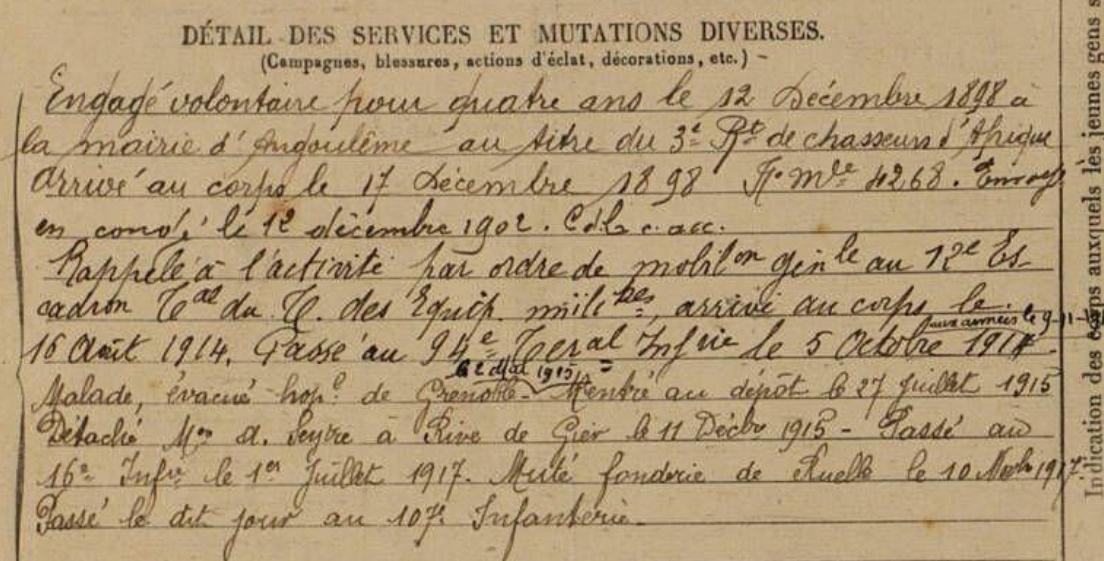 DÉTAIL DES SERVICES ET MUTATIONS DIVERSES.
(Campagnes, blessures, actions d'éclat, décorations, etc.) –
Engagé volontaire pour quatre ans le 12 Décembre 1898 à
la mairie d'Angoulême au titre du 3e Rt de chasseurs d'Afrique
Arrivé au corps le 17 Décembre 1898 No mle 4268. Envoyé
en congé le 12 décembre 1902. C. acc.
Rappelé à l'activité par ordre de mobilon génle au 12e Es-
cadron Tal du T. des Equip. milit res, arrivé au corps le
aux armées le 9-11-
16 Août 1914. Passé au 94e Teral Infrie le 5 Octobre 1914.
le 2 Mai 1915
Malade, évacué hop.l de Grenoble - Rentré au dépôt le 27 juillet 1915
Détaché Mon à Rive de Gier le 11 Décbr 1915 - Passé au
16e Infie le 1er Juillet 1917. Muté fonderie de Ruelle le 10 1917.
Passé le dit jour au 107e Infanterie.
Indication des corps auxquels les jeunes gens s